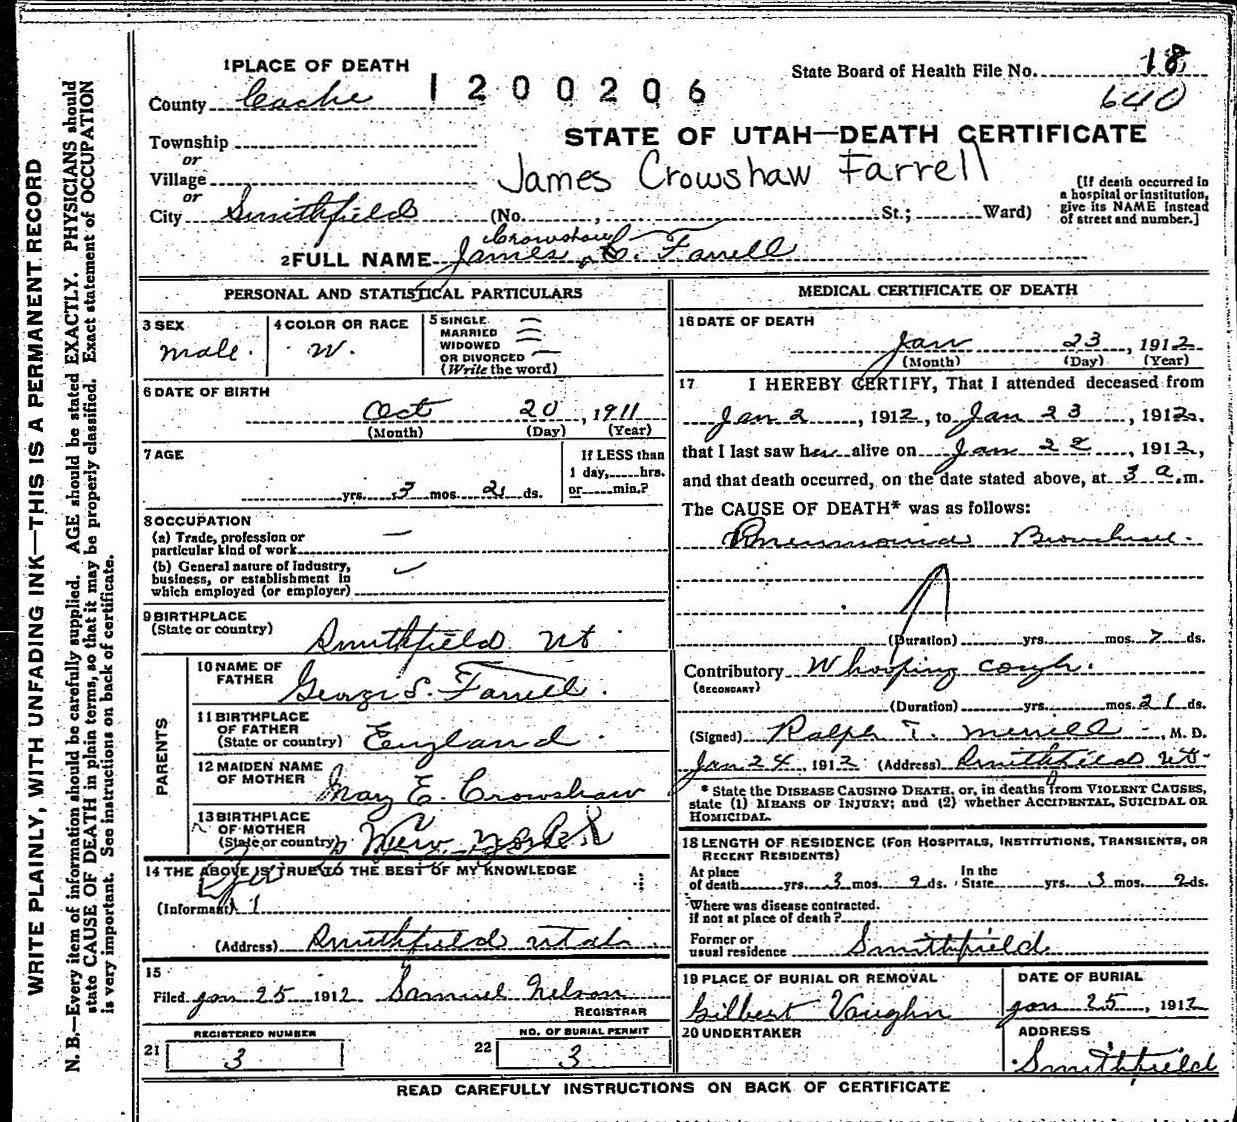 WRITE PLAINLY, WITH UNFADING INK—THIS IS A PERMANENT RECORD
N. B.—Every item of information should be carefully supplied. AGE should be stated EXACTLY. PHYSICIANS should
state CAUSE OF DEATH in plain terms, so that it may be properly classified. Exact statement of OCCUPATION
is very important. See instructions on back of certificate.
1 PLACE OF DEATH
County Cache
1200206
State Board of Health File No. 18
640
STATE OF UTAH—DEATH CERTIFICATE
Township
or
Village
or
James Crowshaw Farrell
City Smithfield (No. , St.; Ward)
[If death occurred in
a hospital or institution,
give its NAME instead
of street and number.]
Crowshaw
2 FULL NAME James C. Farrell
PERSONAL AND STATISTICAL PARTICULARS
3 SEX
male.
4 COLOR OR RACE
W.
5 SINGLE
MARRIED
WIDOWED
OR DIVORCED
(Write the word)
6 DATE OF BIRTH
Oct 20, 1911
(Month) (Day) (Year)
7 AGE
yrs. 3 mos. 2 ds.
If LESS than
1 day, hrs.
or min.?
8 OCCUPATION
(a) Trade, profession or
particular kind of work
(b) General nature of industry,
business, or establishment in
which employed (or employer)
9 BIRTHPLACE
(State or country) Smithfield Ut.
PARENTS
10 NAME OF
FATHER George S. Farrell.
11 BIRTHPLACE
OF FATHER
(State or country) England.
12 MAIDEN NAME
OF MOTHER Mary E. Crowshaw
13 BIRTHPLACE
OF MOTHER
(State or country) New York
14 THE ABOVE IS TRUE TO THE BEST OF MY KNOWLEDGE
(Informant)
(Address) Smithfield Utah.
15
Filed Jan 25 1912 Samuel Nelson
REGISTRAR
REGISTERED NUMBER
21 3
NO. OF BURIAL PERMIT
22 3
MEDICAL CERTIFICATE OF DEATH
16 DATE OF DEATH
Jan 23, 1912
(Month) (Day) (Year)
17 I HEREBY CERTIFY, That I attended deceased from
Jan 2, 1912, to Jan 23, 1912.
that I last saw h alive on Jan 22, 1912,
and that death occurred, on the date stated above, at 3 a.m.
The CAUSE OF DEATH* was as follows:
Pneumonia Bronchial.
(Duration) yrs. mos. 7 ds.
Contributory Whooping cough.
(SECONDARY)
(Duration) yrs. mos. 21 ds.
(Signed) Ralph T. Merrill, M. D.
Jan 24, 1912 (Address) Smithfield Ut.
* State the DISEASE CAUSING DEATH, or, in deaths from VIOLENT CAUSES,
state (1) MEANS OF INJURY; and (2) whether ACCIDENTAL, SUICIDAL OR
HOMICIDAL.
18 LENGTH OF RESIDENCE (FOR HOSPITALS, INSTITUTIONS, TRANSIENTS, OR
RECENT RESIDENTS)
At place
of death yrs. 3 mos. 2 ds.
In the
State yrs. 3 mos. 2 ds.
Where was disease contracted.
if not at place of death?
Former or
usual residence Smithfield
19 PLACE OF BURIAL OR REMOVAL
Gilbert Vaughn
DATE OF BURIAL
Jan 25, 1912
20 UNDERTAKER
ADDRESS
Smithfield
READ CAREFULLY INSTRUCTIONS ON BACK OF CERTIFICATE